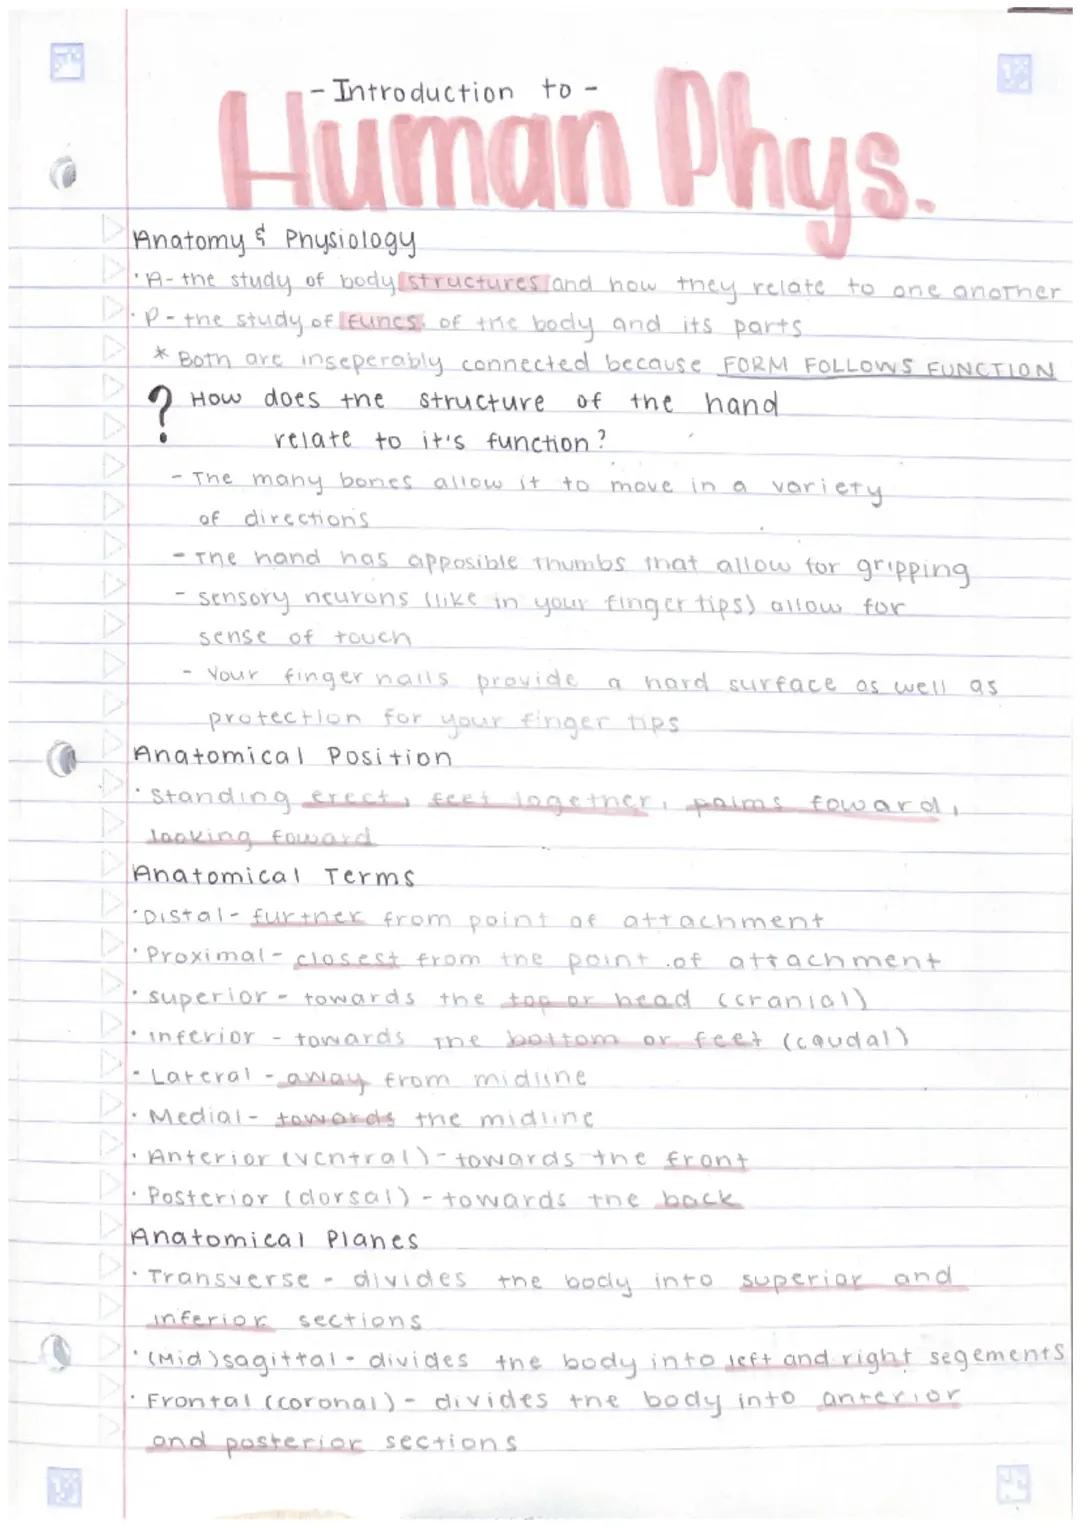 - Introduction to -
Human Phys.
Anatomy & Physiology
· A - the study of body structures and how they relate to one another
· P - the study of funcs. of the body and its parts
* Both are inseperably connected because FORM FOLLOWS FUNCTION
? How does the structure of the hand
relate to it's function?
- The many bones allow it to move in a variety
of directions
- The hand has apposible thumbs that allow for gripping
- sensory neurons (like in your finger tips) allow for
sense of touch
- Your finger nails provide a hard surface as well as
protection for your finger tips
Anatomical Position
· Standing erect, feet together, palms foward,
looking foward
Anatomical Terms
· Distal - further from point of attachment
· Proximal - closest from the point of attachment
· superior - towards the top or head (cranial)
· inferior - towards the bottom or feet (caudal)
· Lateral - away from midline
· Medial - towards the midline
· Anterior (ventral) - towards the front
· Posterior (dorsal) - towards the back
Anatomical Planes
· Transverse - divides the body into superior and
inferior sections
· (Mid)sagittal - divides the body into left and right segements
· Frontal (coronal) - divides the body into anterior
and posterior sections